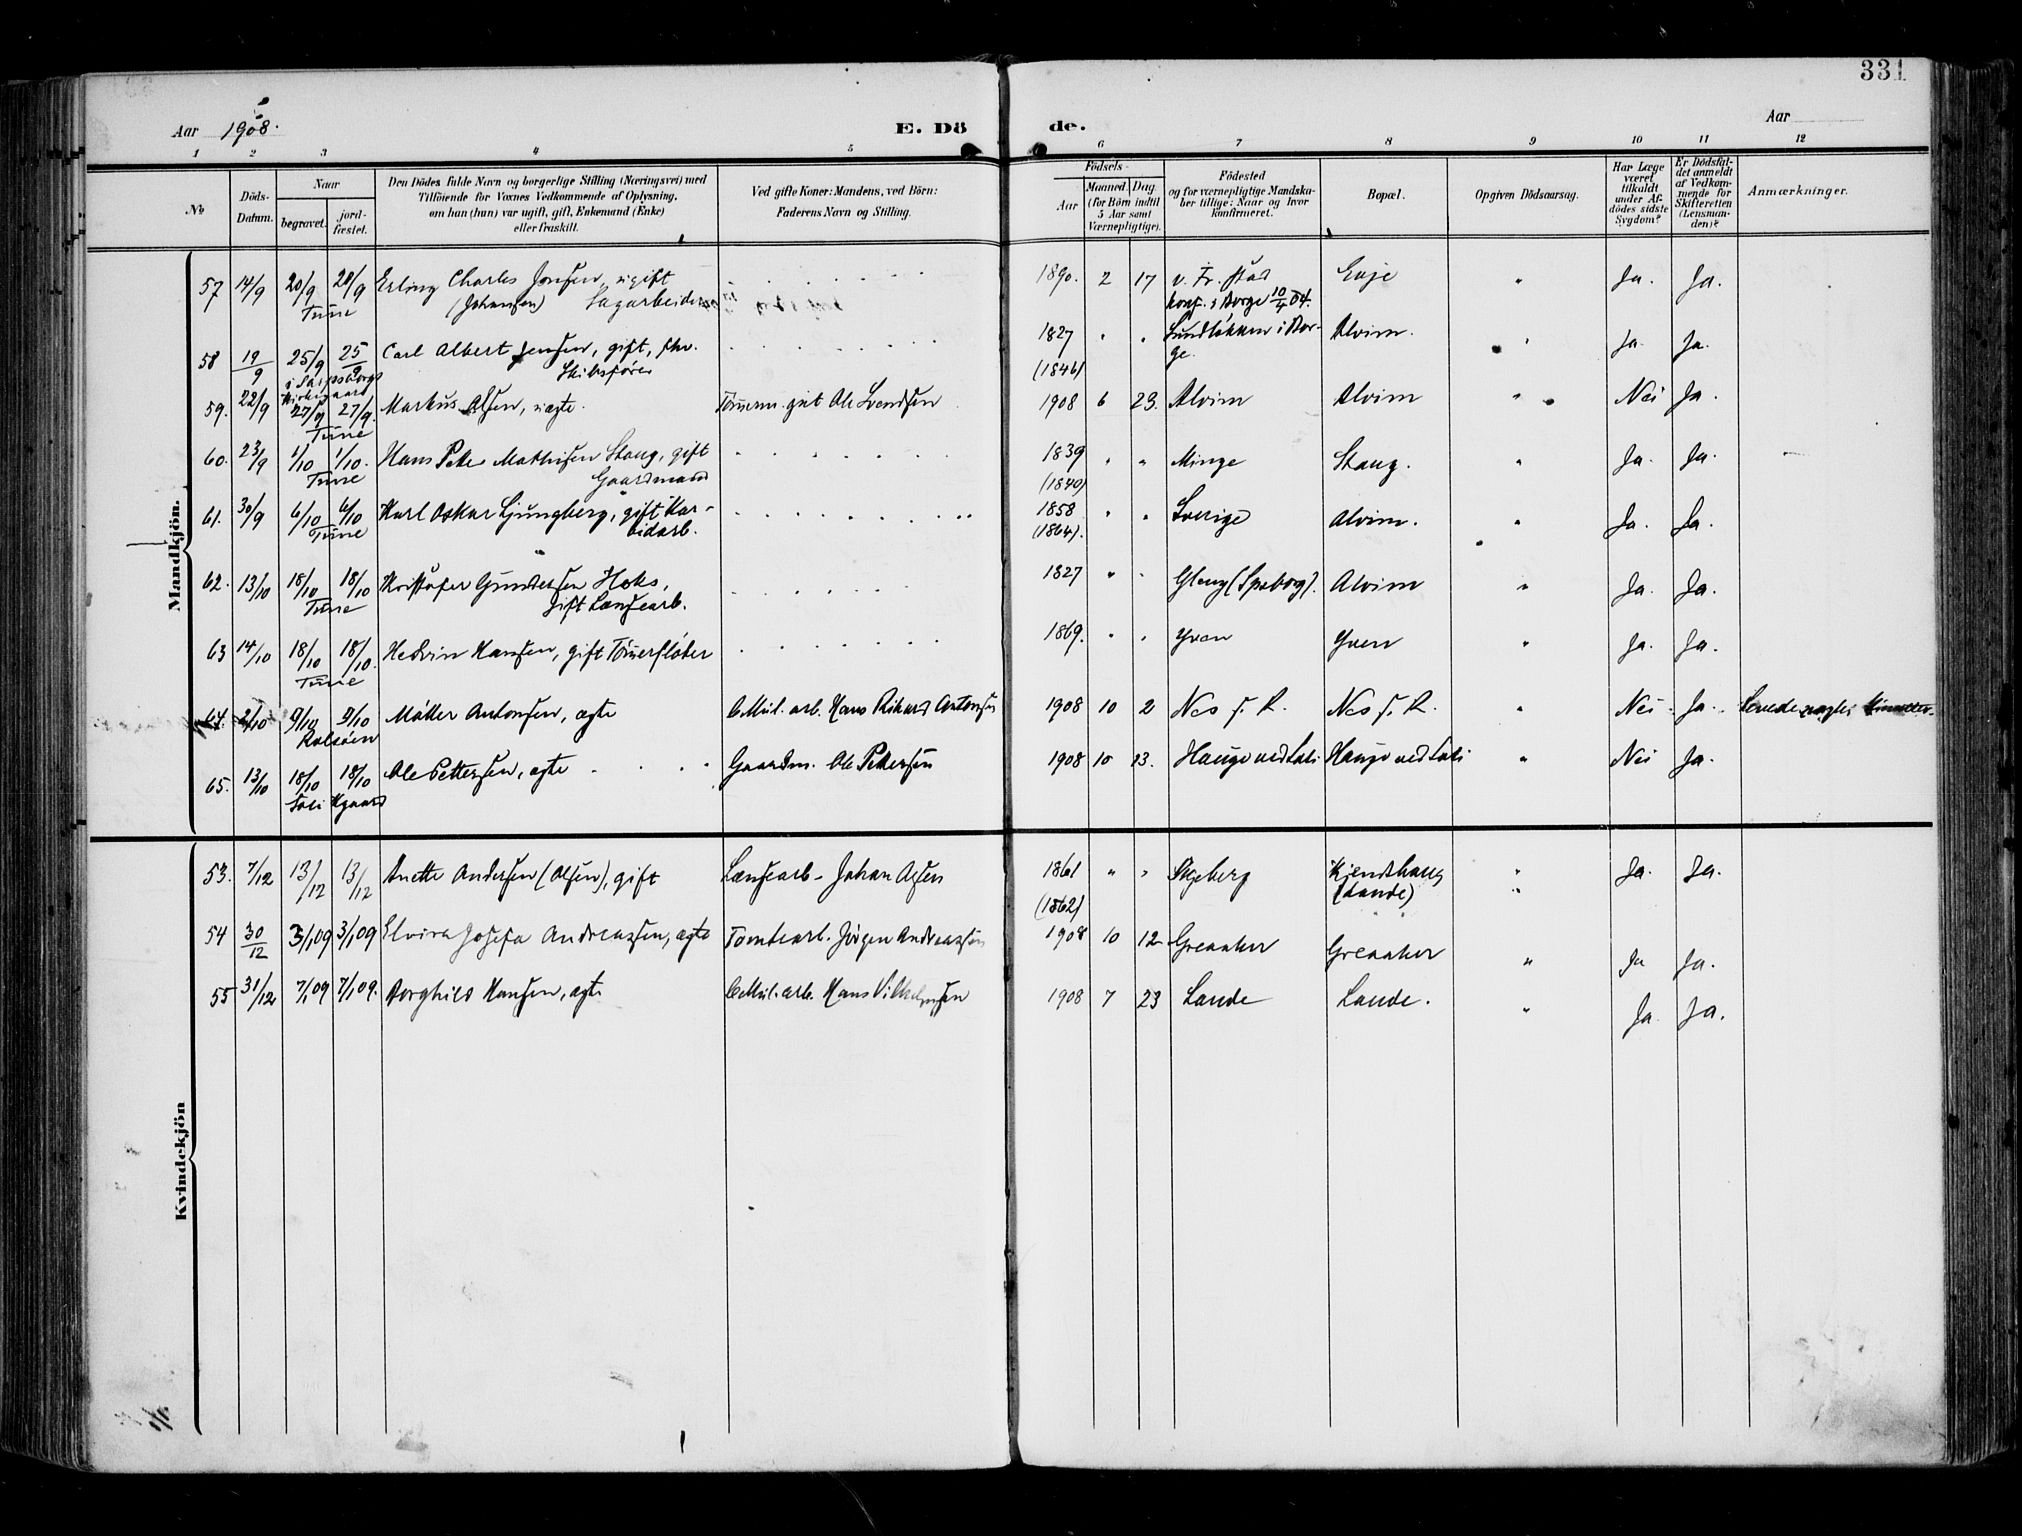 331
Aar 1908.
E. Dö de.
Aar
1 2 3 4 5 6 7 8 9 10 11 12
No
Döds-Datum.
Naar
begravet.
jord-fæstet.
Den Dödes fulde Navn og borgerlige Stilling (Næringsvei) med
Tilföiende for Voxnes Vedkommende af Oplysning,
om han (hun) var ugift, gift, Enkemand (Enke)
eller fraskilt.
Ved gifte Koner: Mandens, ved Börn:
Faderens Navn og Stilling.
Födsels-
Aar
Maaned. Dag.
(for Börn indtil
5 Aar samt
Værnepligtige).
Födested
og for værnepligtige Mandska-
ber tillige: Naar og hvor
konfirmeret.
Bopæl.
Opgiven Dödsaarsag.
Har Læge
været
tilkaldt
under Af-
dödes sidste
Sygdom?
Er Dödsfal-
det anmeldt
af Vedkom-
mende for
Skifteretten
(Lensman-
den)?
Anmærkninger.
Mandkjön.
57 14/9 20/9 20/9 Erling Charles Jensen, ugift 1890. 2 17 v. Fr.stad Enje " Ja. Ja.
Tune (Johansen) Sagarbeider konf. i Borge 10/4 04.
58 19/9 25/9 25/9 Carl Albert Jensen, gift, fhv. 1827 " " i Bor- Alvim. " Ja. Ja.
i Sarpsborgs Kirkegaard Skibsfører (1846) ge.
59. 22/9 27/9 27/9. Markus Olsen, uægte. Tømerm. gift Ole Svendsen 1908 6 23. Alvim Alvim " Nei Ja.
Tune
60. 23/9 1/10 1/10. Hans Peter Mathisen Stang, gift 1839 " " Minge Stang. " Ja. Ja.
Tune Gaardmand (1840)
61. 30/9 6/10 6/10 Karl Oskar Ljungberg, gift Kar- 1858 " " Sverige Alvim. " Ja. Ja.
Tune bidarb. (1864).
62. 13/10 18/10 18/10 Kristofer Gundersen Hoks, 1827 " " Gleng (Spsborg). Alvim " Ja. Ja.
Tune gift Løusearb.
63 14/10 18/10 18/10. Hedvin Hansen, gift Tømerfløter 1869. " " Yven Yven " Ja. Ja.
Tune
64. 2/10 9/10 9/10 Møller Antonsen, ægte C Mül. arb. Hans Rikard Antonsen 1908 10 2 Nes f. R. Nes f. R. " Nei Ja.
Rolsøen
65. 13/10 18/10 18/10 Ole Pettersen, ægte Gaardm. Ole Pettersen 1908 10 13. Hauge ved Soli Hauge ved Soli " Nei Ja.
Soli Kgaard
Kvindekjön
53. 7/12 13/12 13/12 Anette Andersen (Olsen), gift Løusearb. Johan Olsen 1861 " " Skjeberg Kjendshaug " Ja. Ja.
(1862) (Lande)
54 30/12 3/1 09 3/1 09 Elvira Josefa Andreassen, ægte Tomtearb. Jørgen Andreassen 1908 10 12 Greaaker Greaaker " Ja Ja.
55 31/12 7/1 09 7/1 09. Borghild Hansen, ægte C Mül. arb. Hans Vilhelmsen 1908 7 23 Lande Lande. " Ja. Ja.